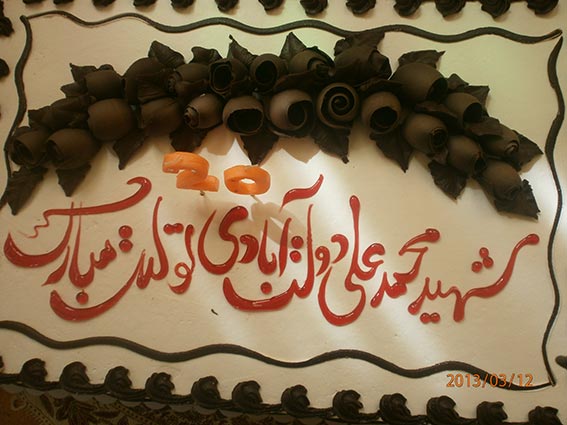 20
شهید محمد علی دولت آبادی تولدت مبارک
2013/03/12